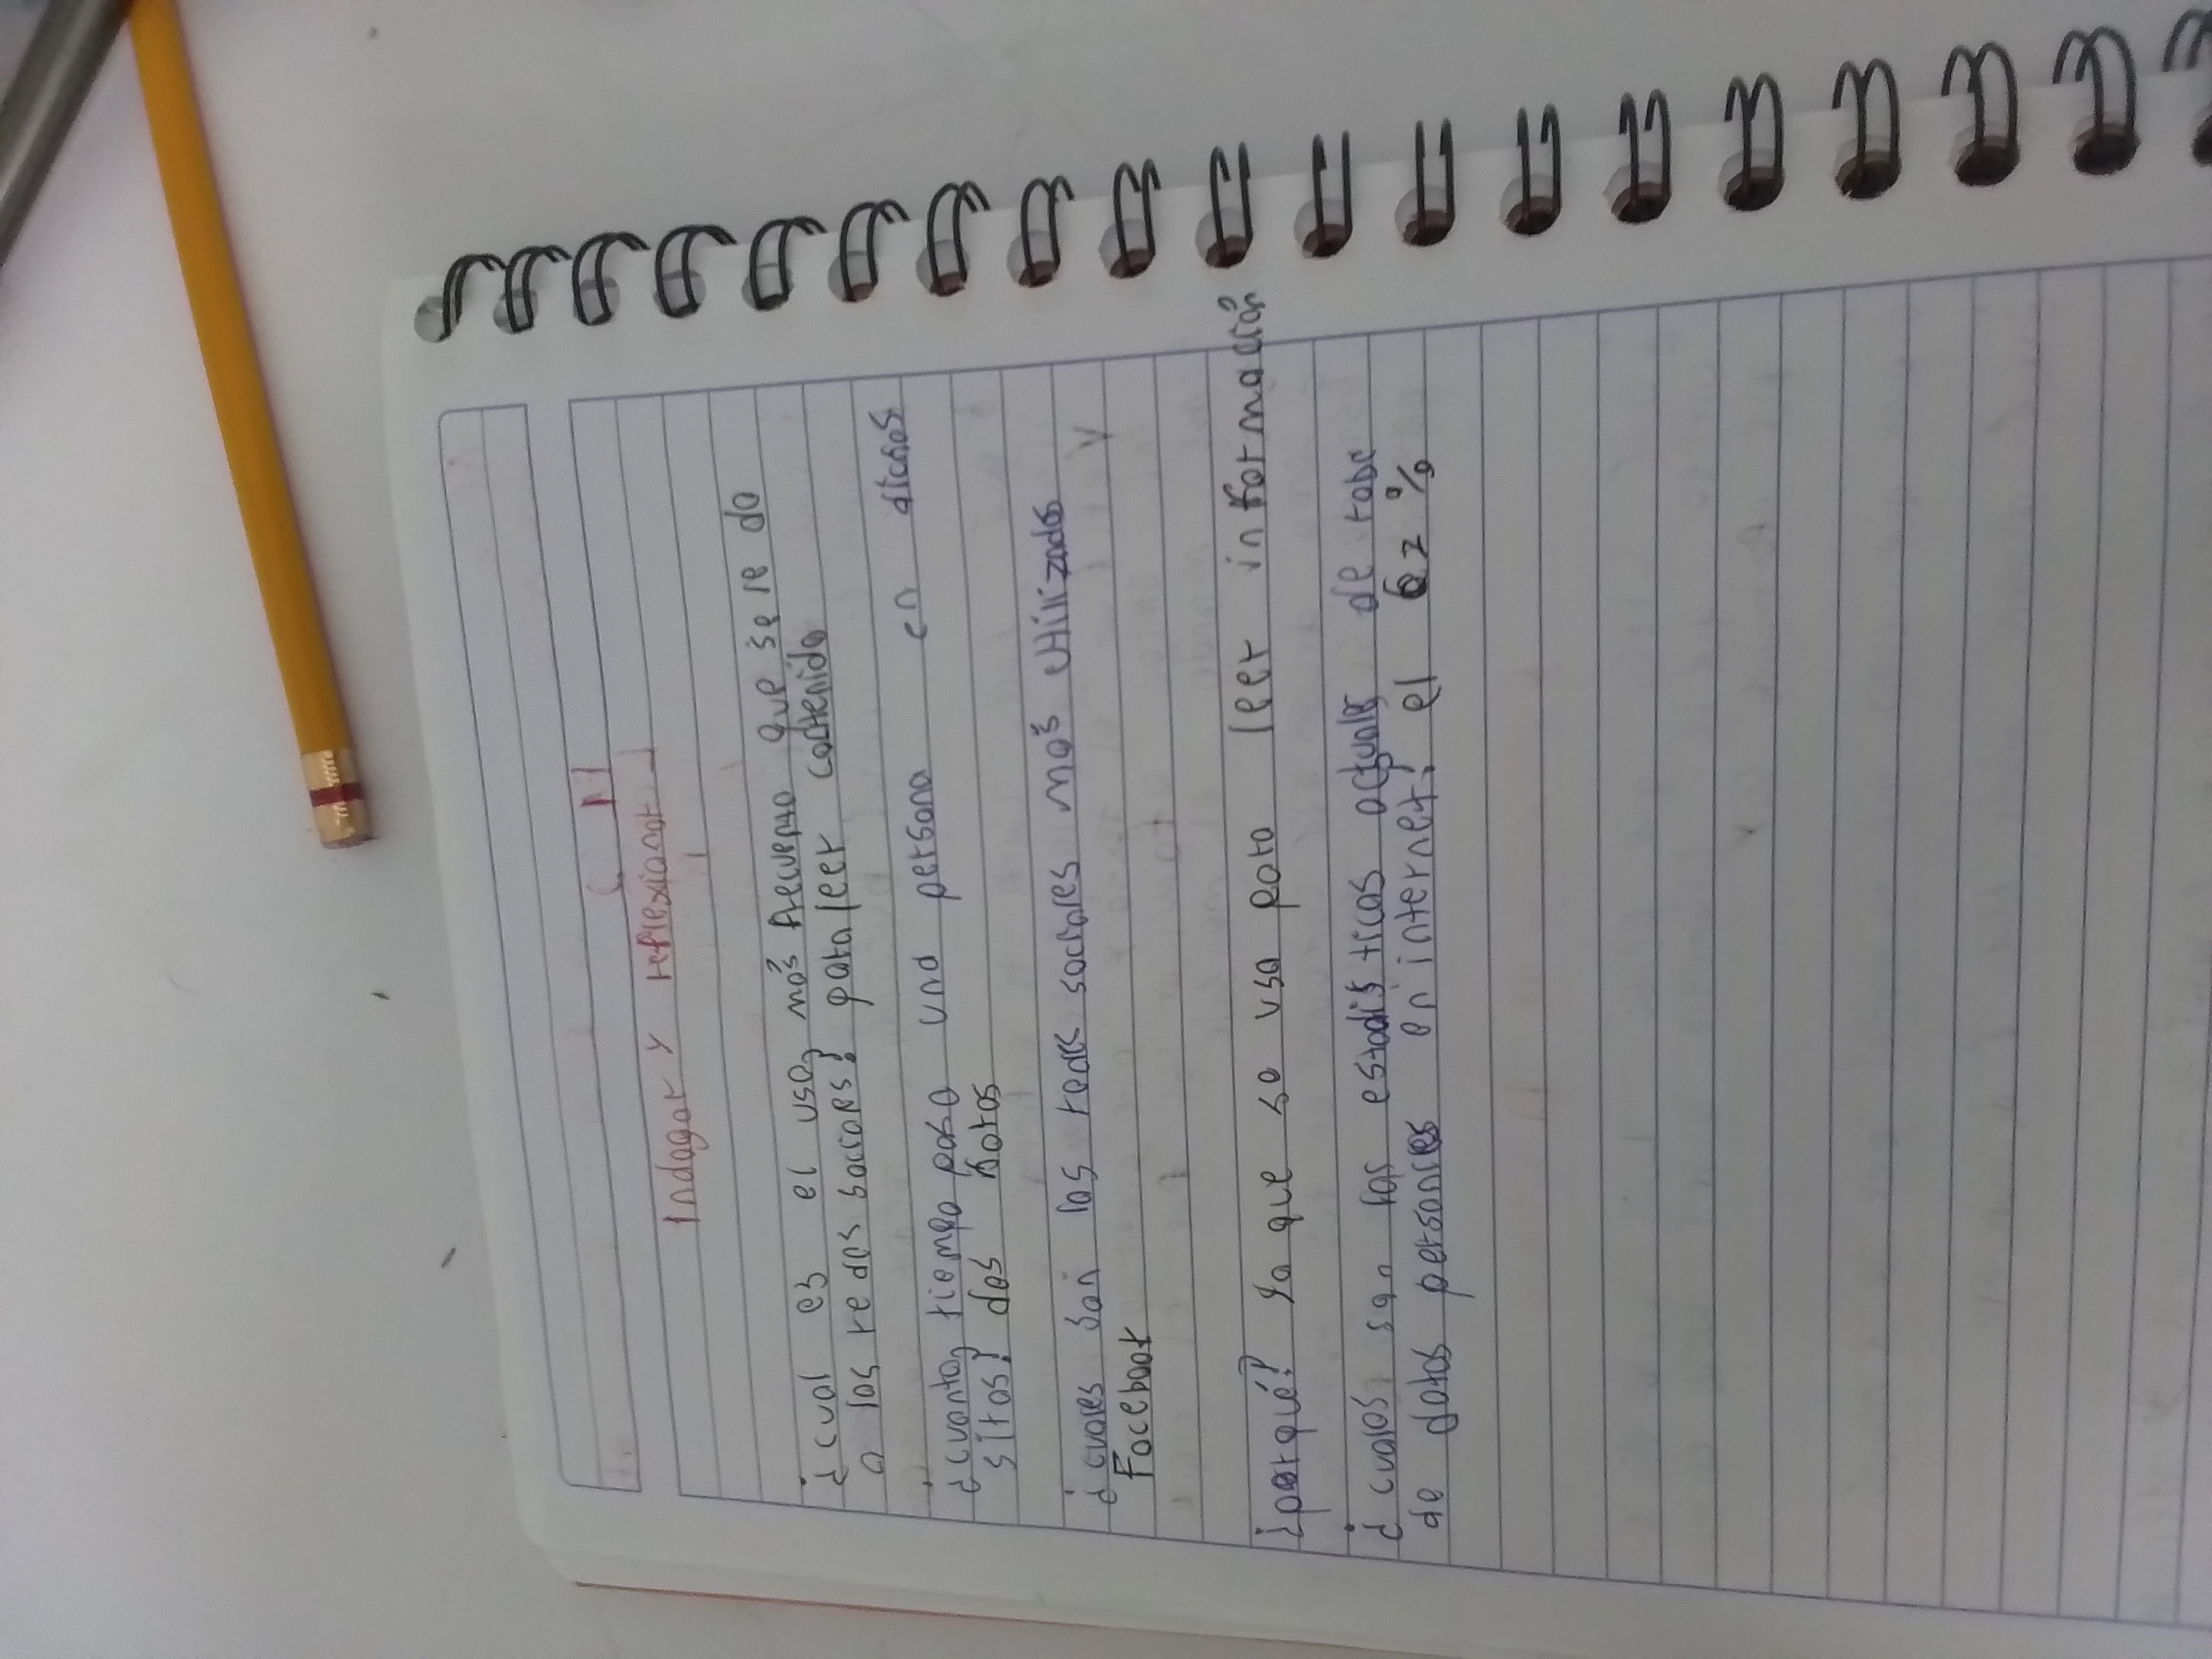 Indagar y reflexionar
¿cual es el uso, más frecuenso que se re do
a las redes sociares? para leer contenido
¿cuanto, tiempo pasa una persona en dichos
sitos? dos horas
¿cuares son las redes sociares más utilizados
Facebook
¿porqué? Ya que se usa para leer información
¿cualos son las estadisticas actuals de robe
de datos personles en internet? el 62%